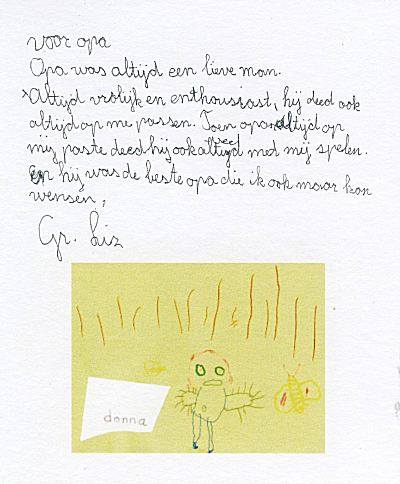 voor opa
Opa was altijd een lieve man.
Altijd vrolijk en enthousiast, hij deed ook
altijd op me passen. Toen opa altijd op
mij paste deed hij ook altijd mee met mij spelen.
En hij was de beste opa die ik ook maar kon
wensen,
Gr. Liz
donna